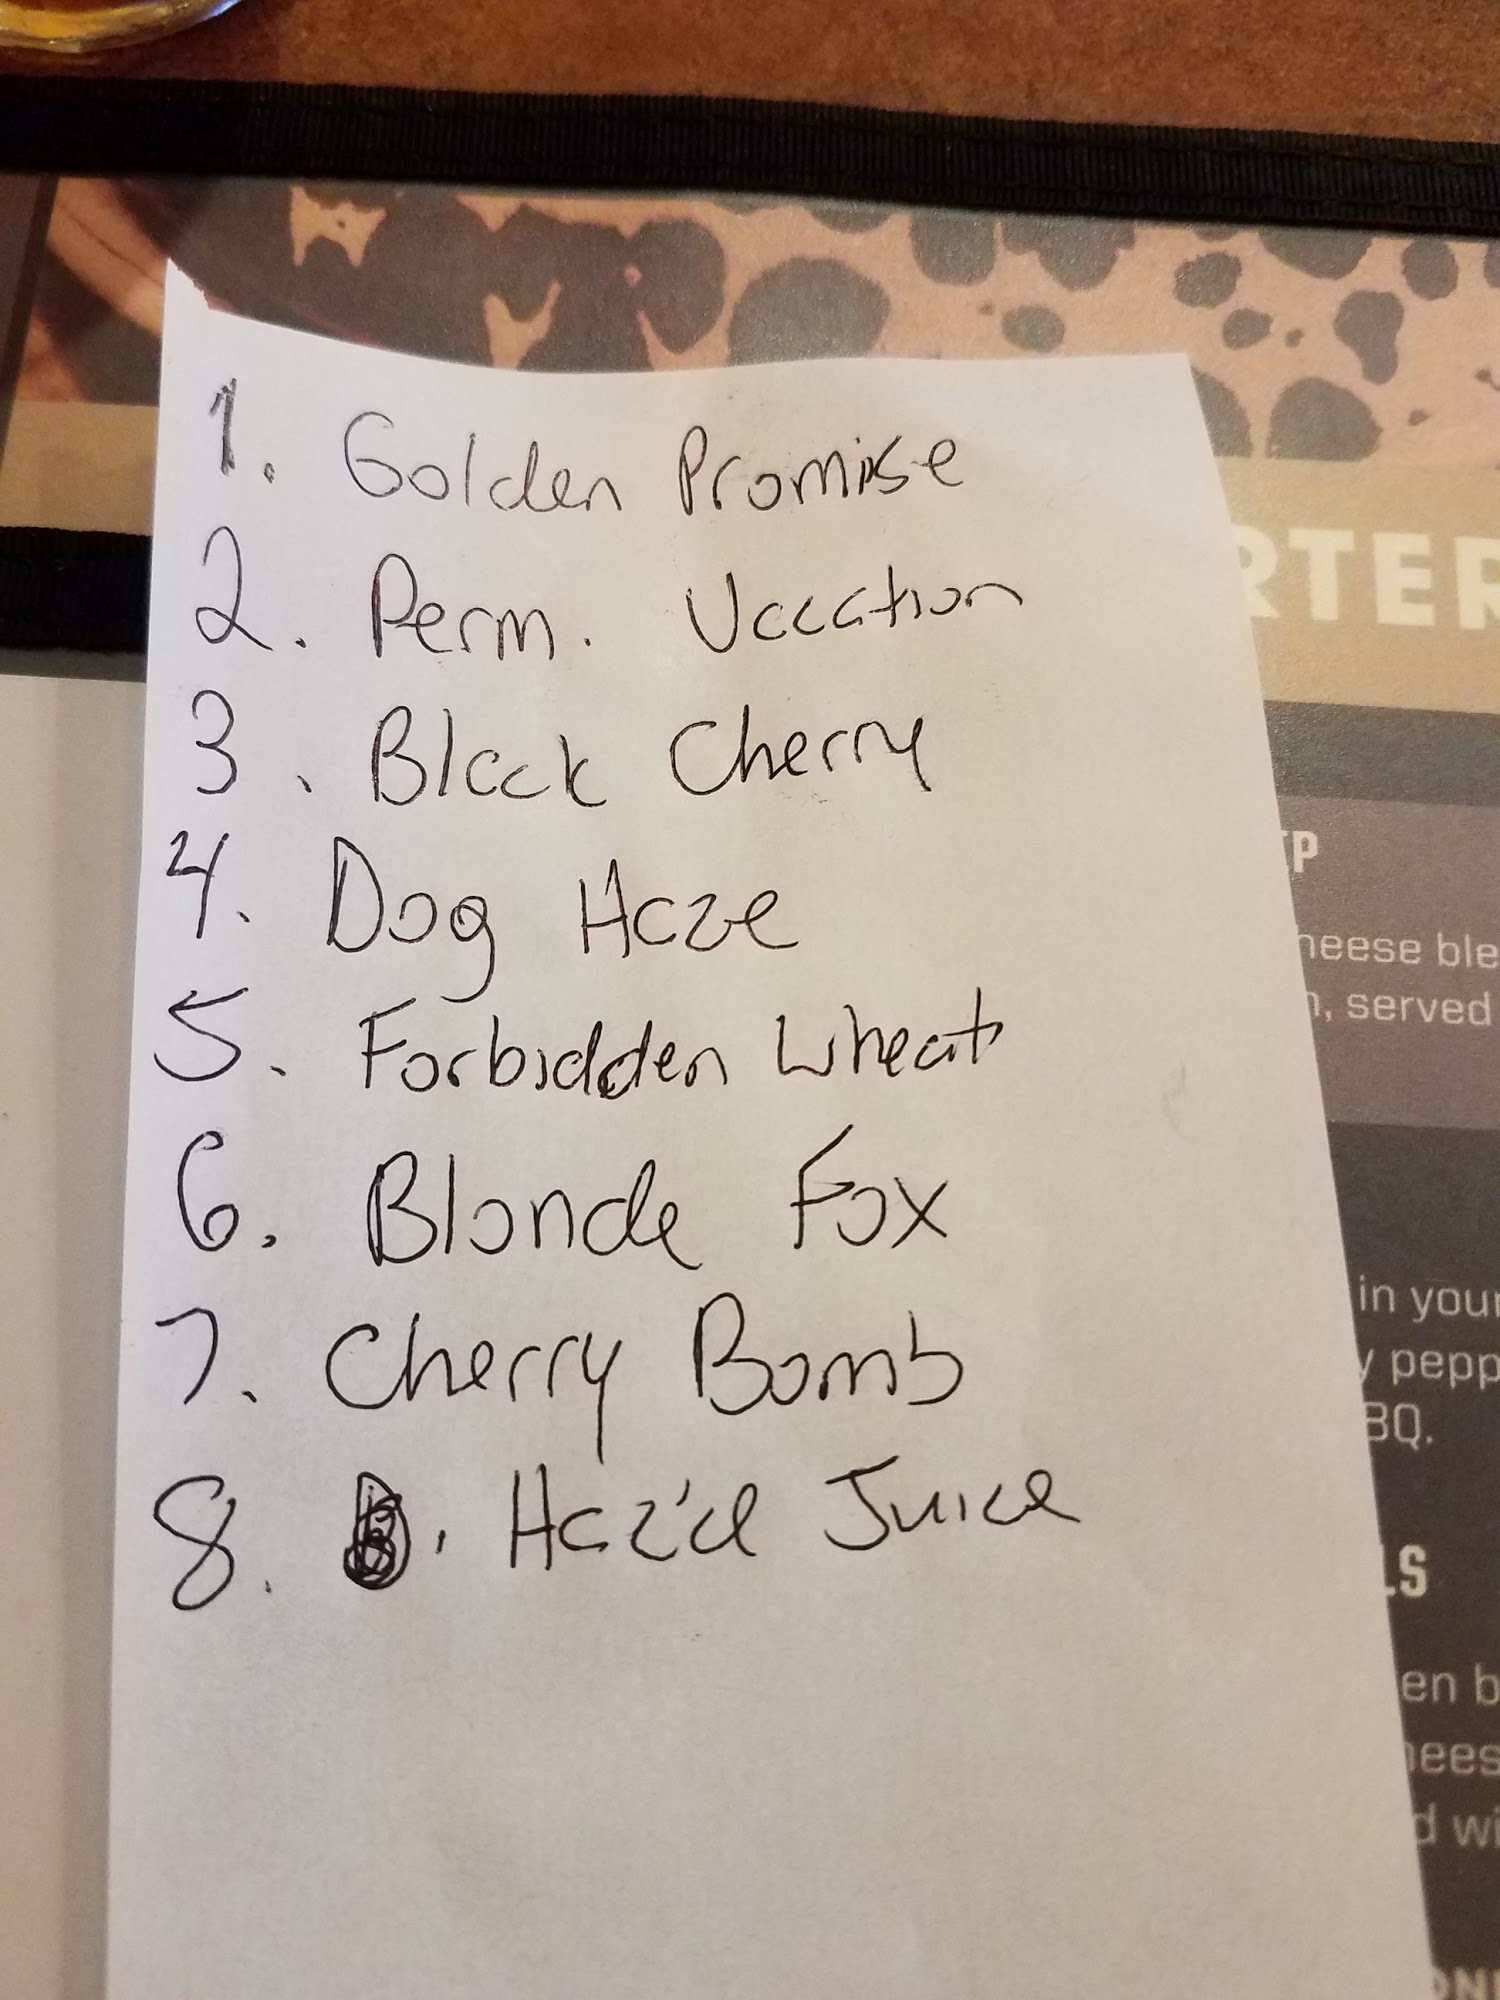 1. Golden Promise
2. Perm. Vacation
RTER
3. Black Cherry
4. Dog Haze
IP
heese ble
, served
5. Forbidden Wheat
6. Blonde Fox
in your
7. Cherry Bomb
y pepp
BQ.
8. . Haz'd Juice
LS
en b
hees
d wi